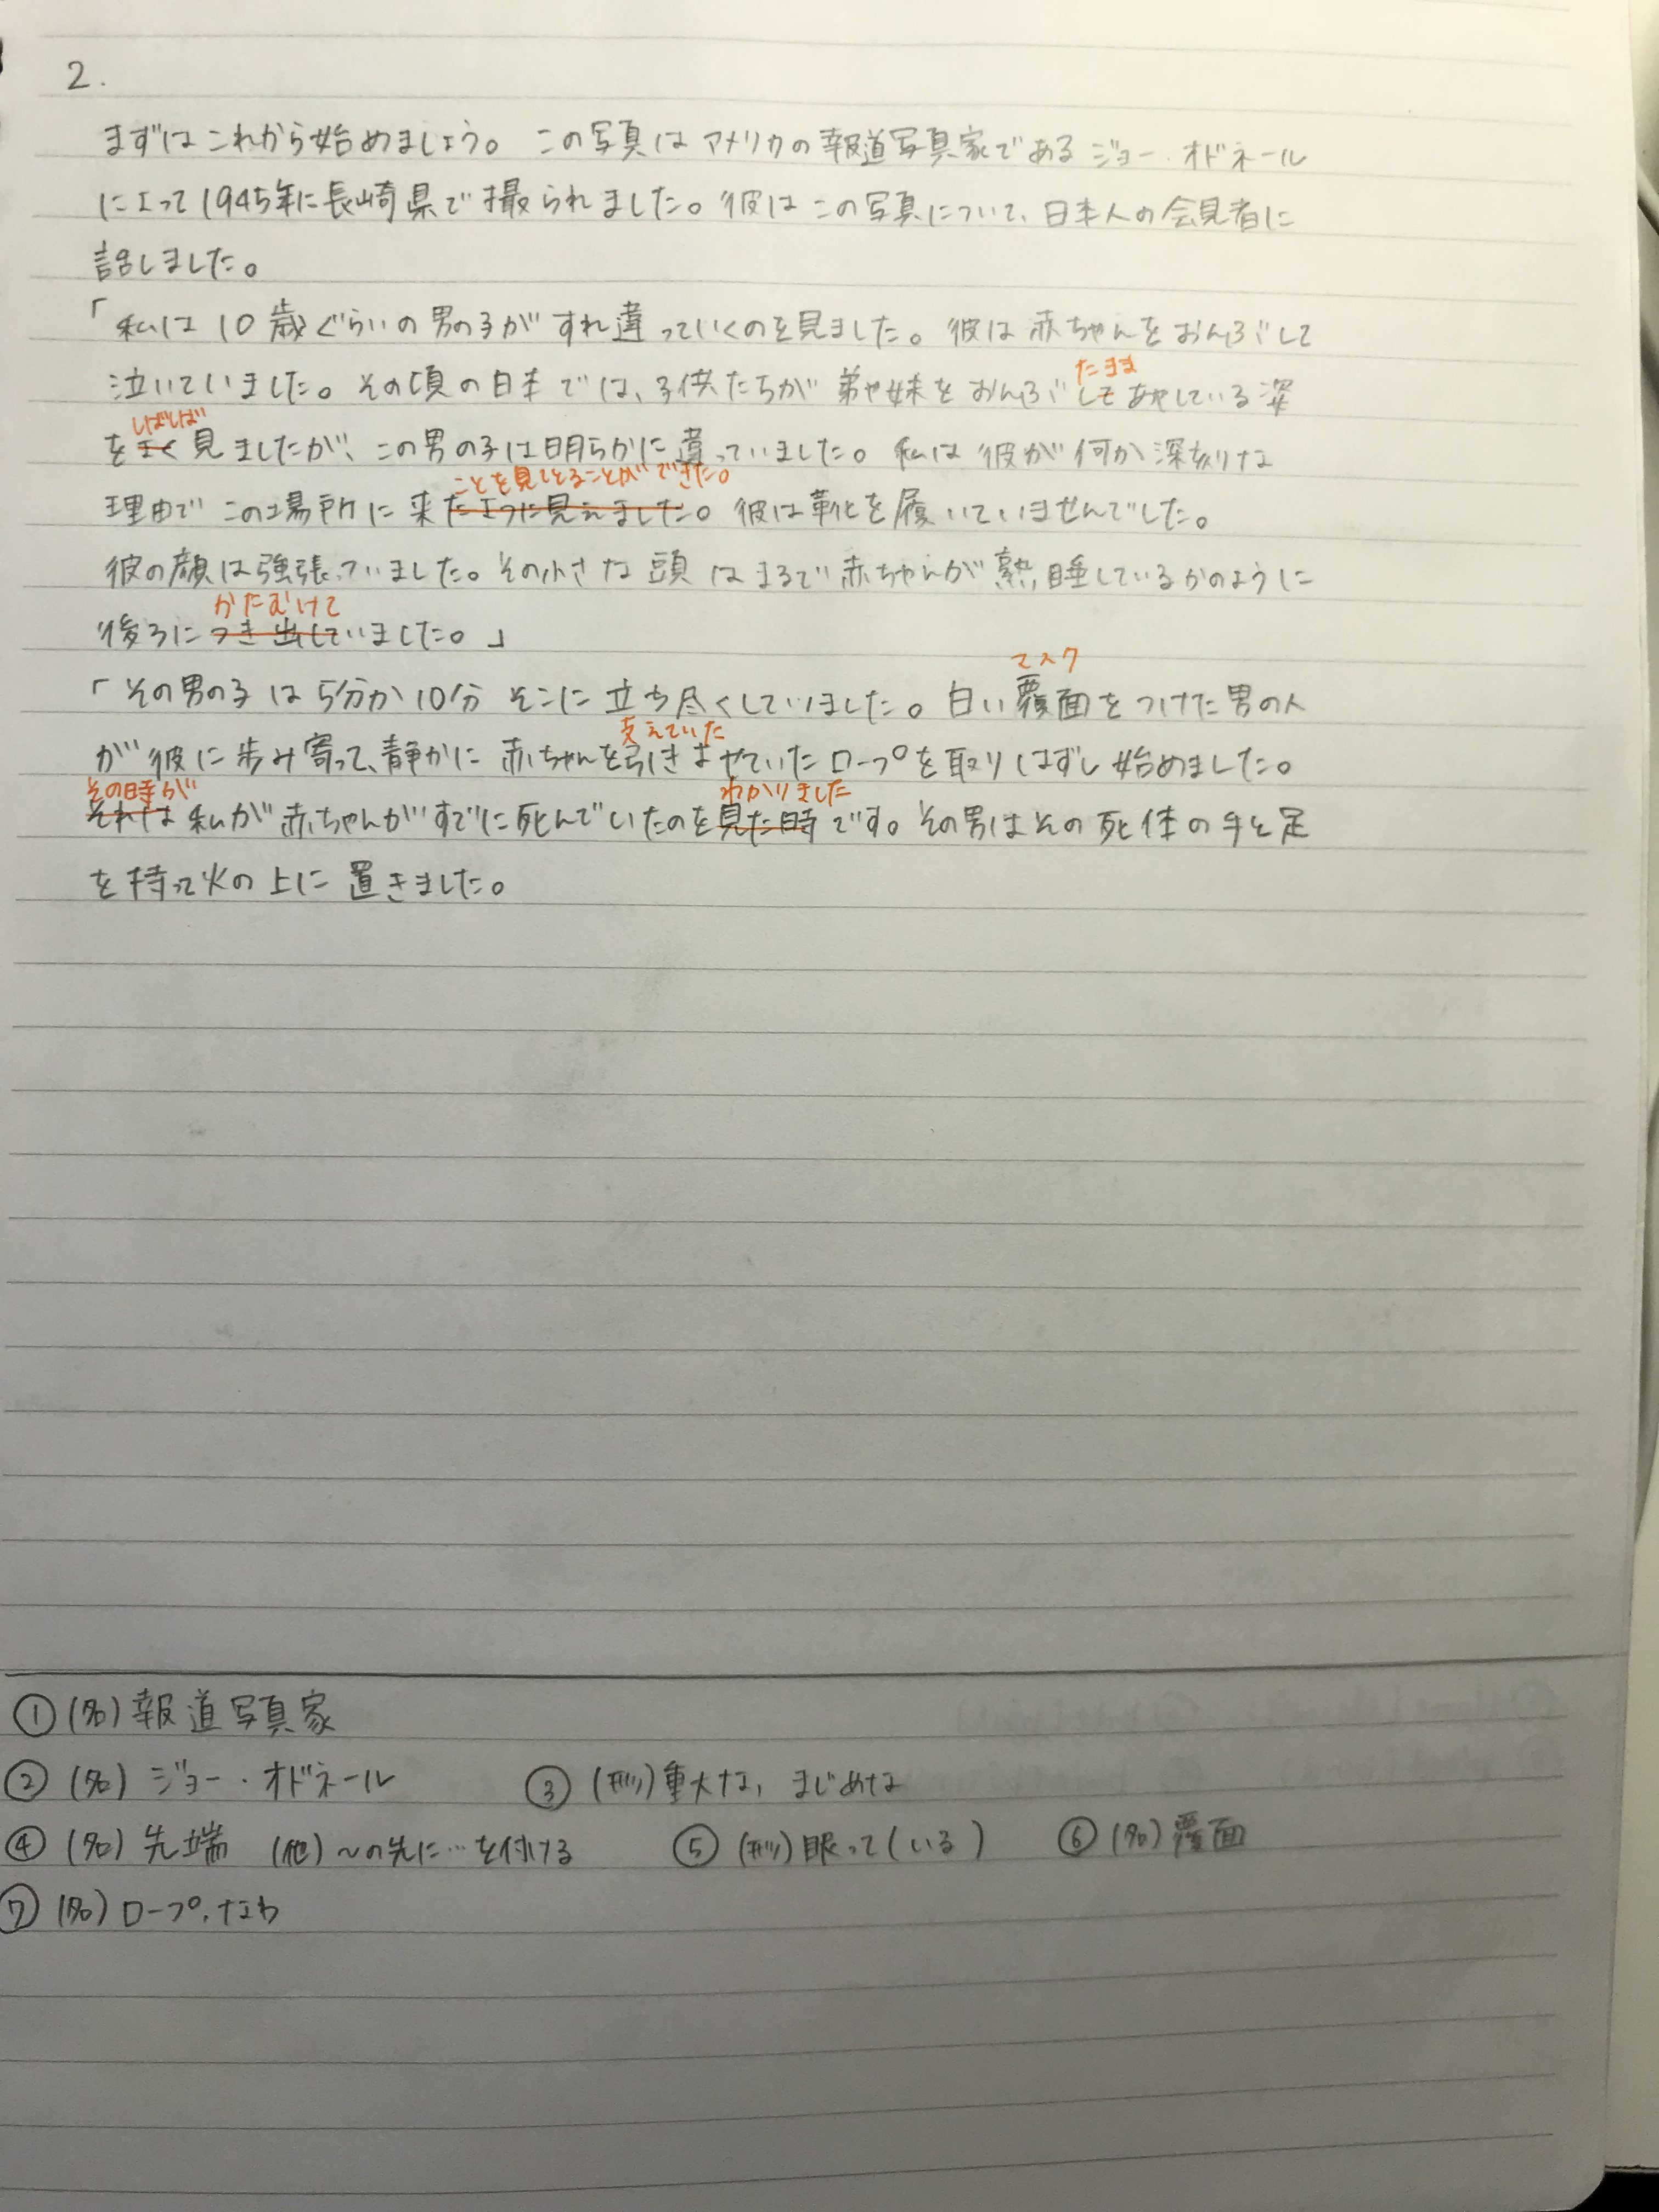 2.
まずはこれから始めましょう。この写真はアメリカの報道写真家であるジョー・オドネール
によって1945年に長崎県で撮られました。彼はこの写真について、日本人の会見者に
話しました。
「私は10歳ぐらいの男の子がすれ違っていくのを見ました。彼は赤ちゃんをおんぶして
たまま
泣いていました。その頃の日本では、子供たちが弟や妹をおんぶしてあやしている姿
しばしば
をよく見ましたが、この男の子は明らかに違っていました。私は彼が何か深刻な
ことを見てとることができた。
理由でこの場所に来たように見えました。彼は靴を履いていませんでした。
彼の顔は強張っていました。その小さな頭はまるで赤ちゃんが熟睡しているかのように
かたむけて
後ろにつき出していました。」
マスク
「その男の子は5分か10分そこに立ち尽くしていました。白い覆面をつけた男の人
支えていた
が彼に歩み寄って、静かに赤ちゃんを引きよせていたロープを取りはずし始めました。
その時が わかりました
それは私が赤ちゃんがすでに死んでいたのを見た時です。その男はその死体の手と足
を持って火の上に置きました。
①(名)報道写真家
②(名)ジョー・オドネール ③(形)重大な,まじめな
④(名)先端 (他)〜の先に…を付ける ⑤(形)眠って(いる) ⑥(名)覆面
⑦(名)ロープ,なわ